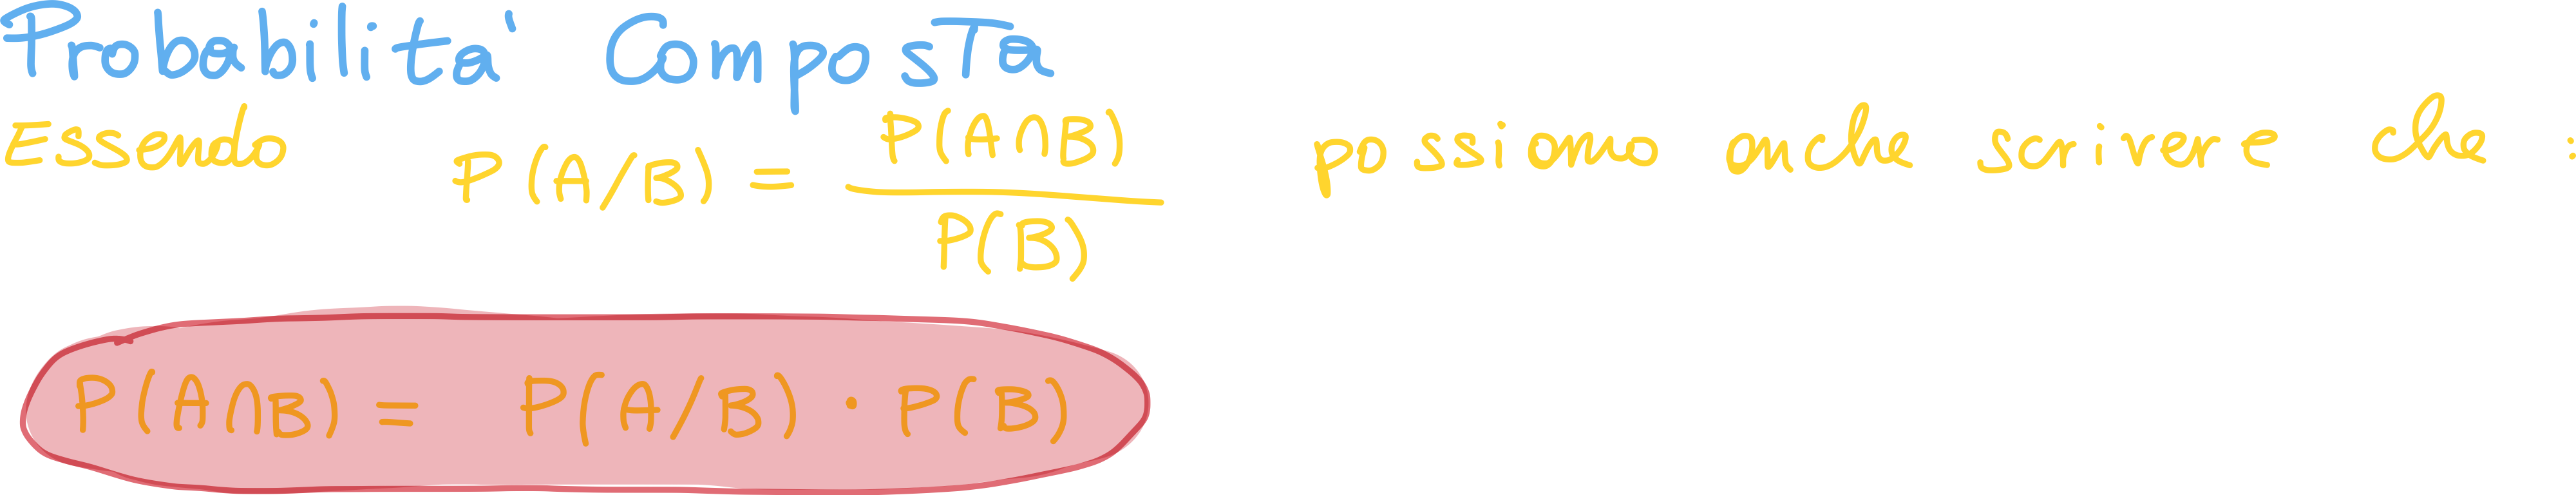 Probabilita' Composta
Essendo P(A/B) = P(A∩B) / P(B) possiamo anche scrivere che :
P(A∩B) = P(A/B) · P(B)